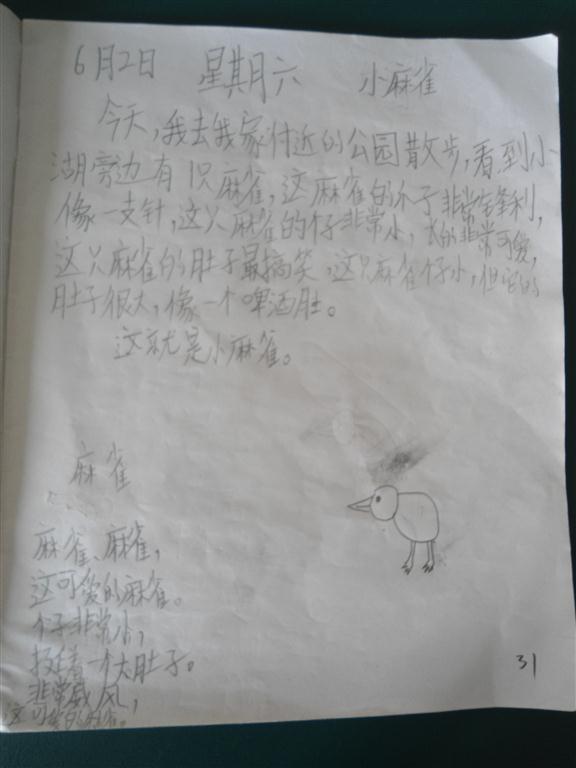 6月2日 星期六 小麻雀
今天,我去我家付近的公园散步,看到小
湖旁边有1只麻雀,这麻雀的个子非常锋利,
像一支针,这只麻雀的个子非常小,长的非常可爱,
这只麻雀的肚子最搞笑,这只麻雀个子小,但它的
肚子很大,像一个啤酒肚。
这就是小麻雀。
麻雀
麻雀、麻雀,
这可爱的麻雀。
个子非常小,
挺着一个大肚子。
非常威风,
这可爱的麻雀。
31